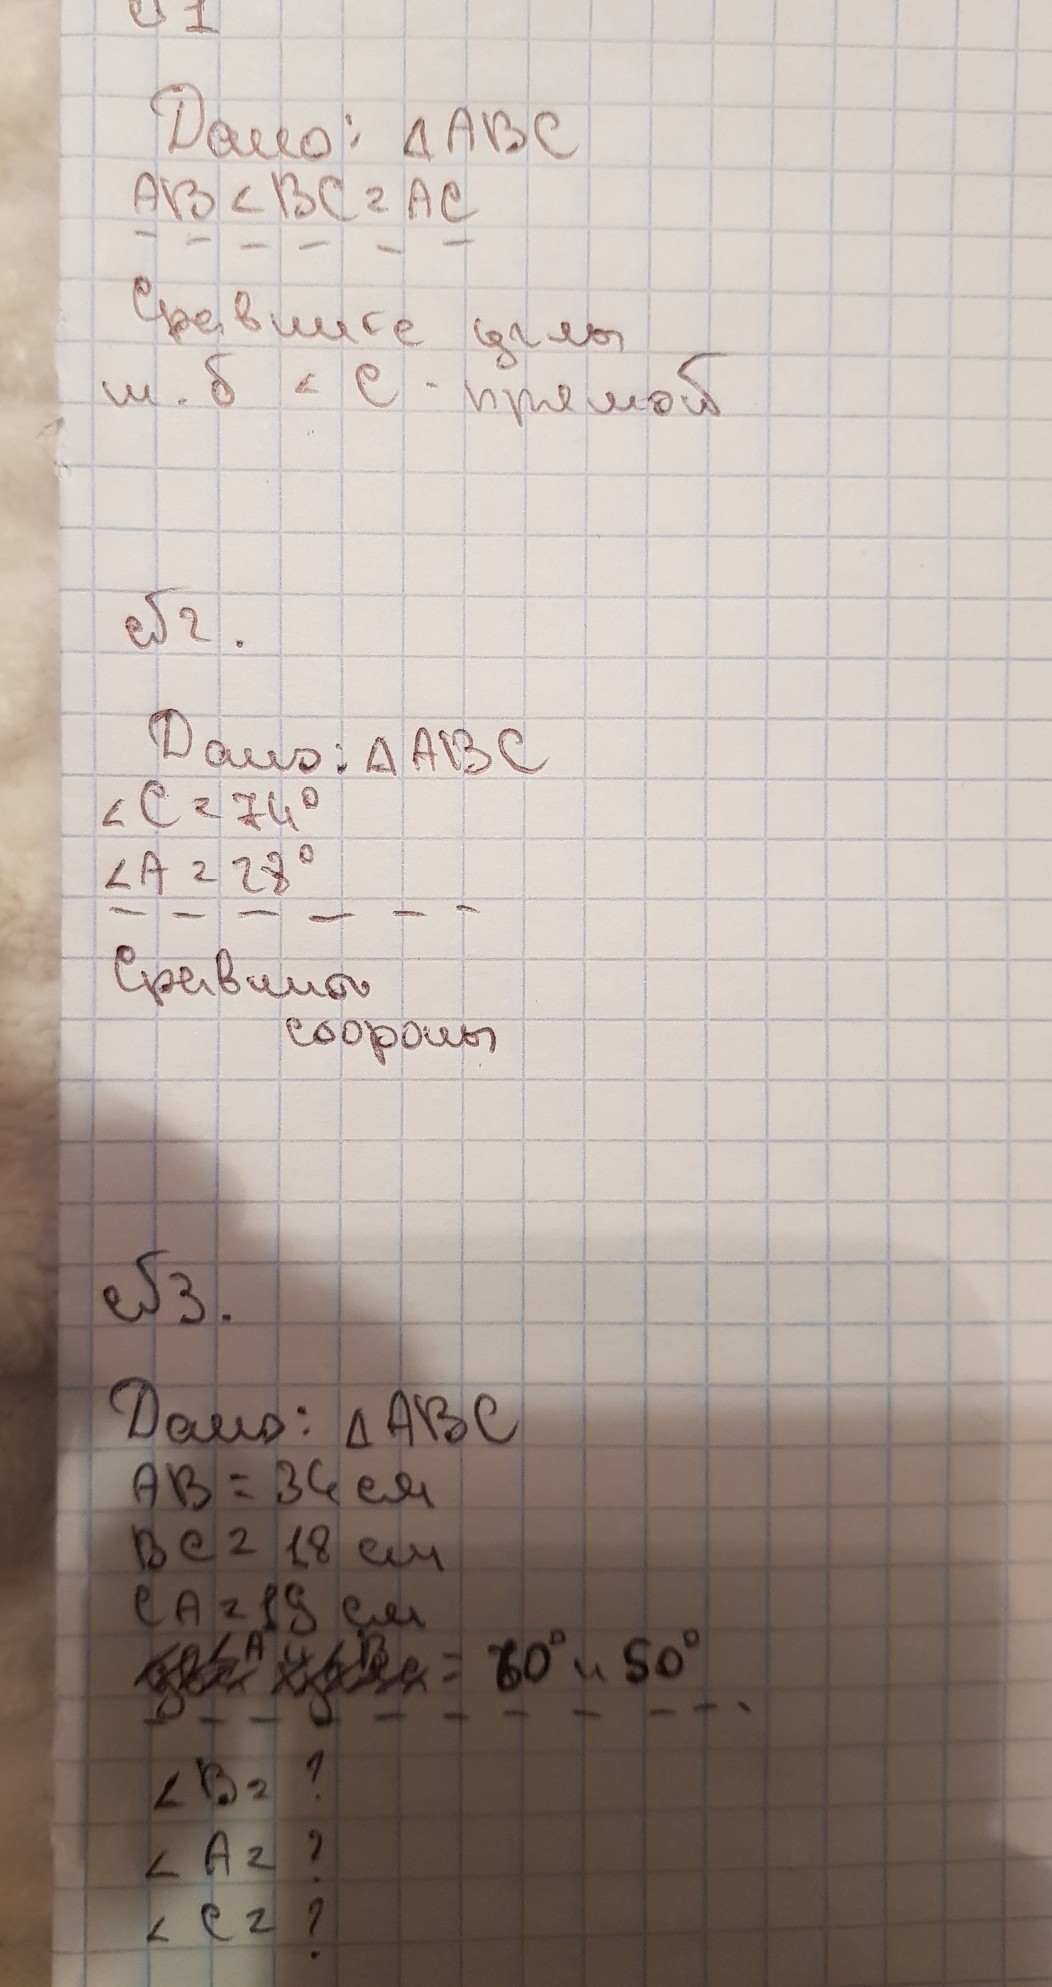 №1
Дано: ΔABC
AB < BC = AC
Сравните углы
м. б ∠ C - прямой
№2.
Дано: ΔABC
∠C = 74°
∠A = 28°
Сравнить
стороны
№3.
Дано: ΔABC
AB = 34 см
BC = 18 см
CA = 19 см
∠A и ∠B = 60° и 50°
∠B = ?
∠A = ?
∠C = ?